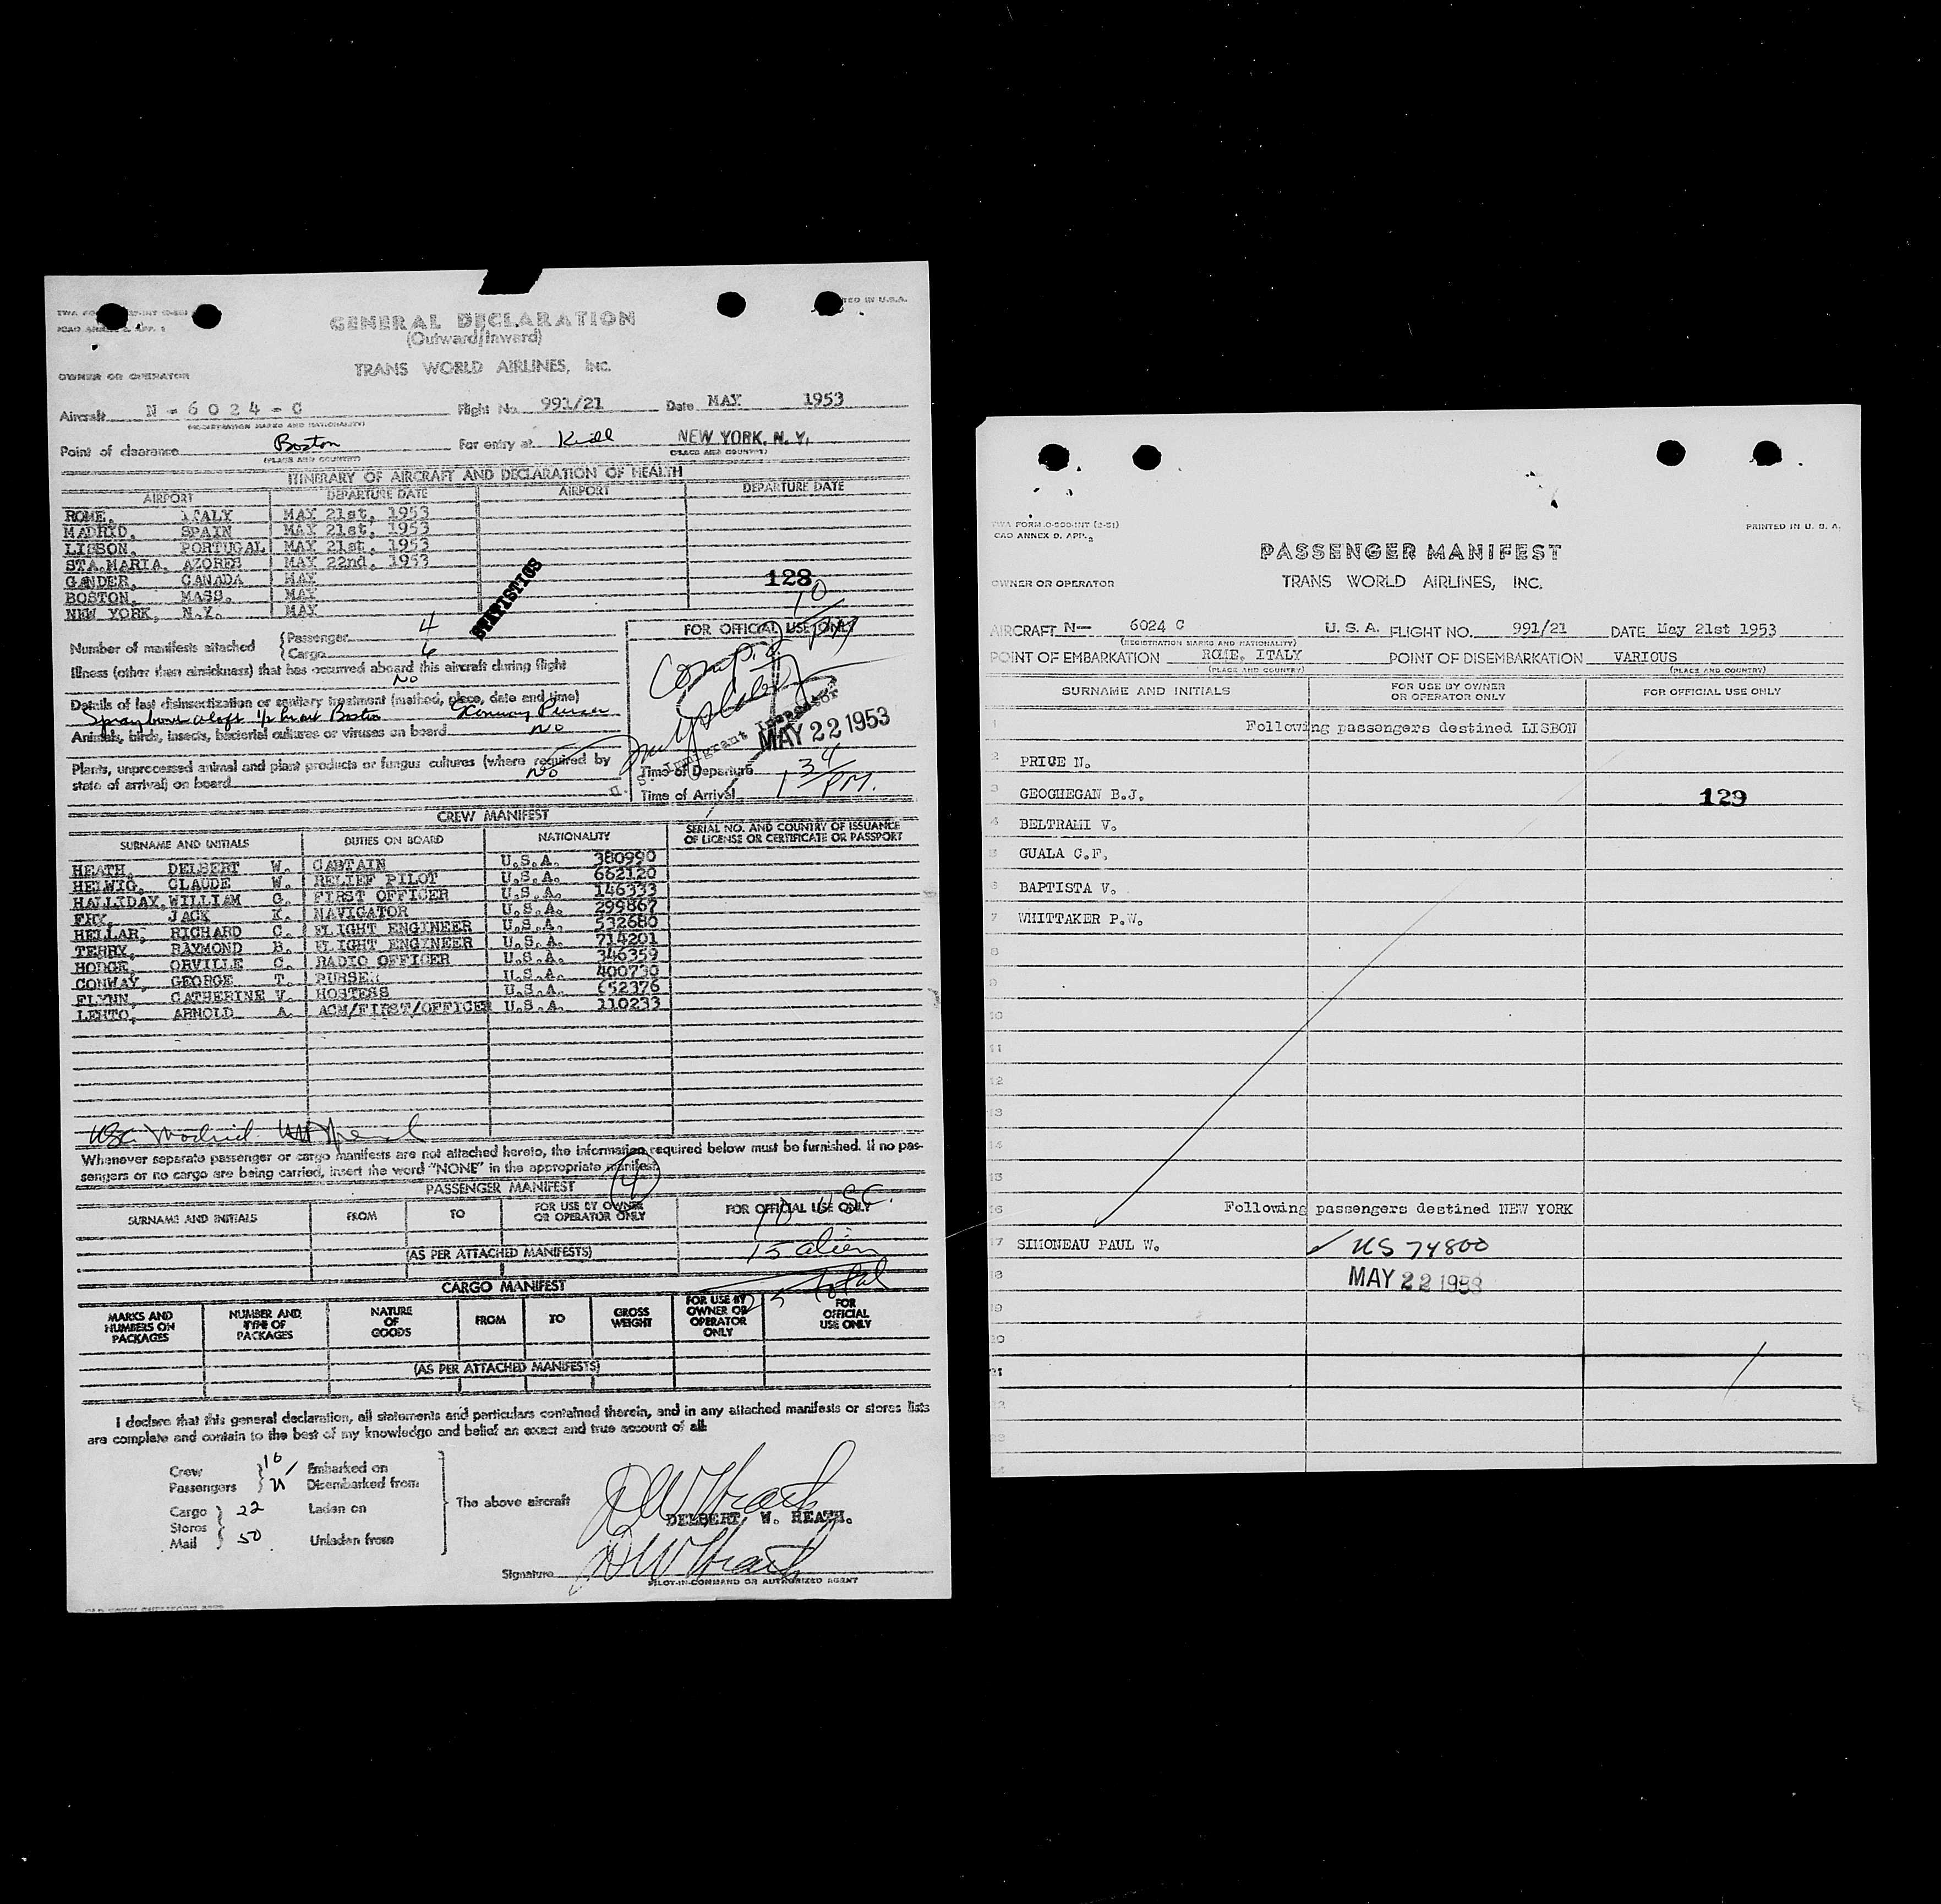 PRINTED IN U.S.A.
GENERAL DECLARATION
(Outward/Inward)
TRANS WORLD AIRLINES, INC.
OWNER OR OPERATOR
Aircraft N - 6 0 2 4 - C Flight No. 991/21 Date MAY 1953
(REGISTRATION MARKS AND NATIONALITY)
Point of clearance Boston For entry at NEW YORK, N. Y.
(PLACE AND COUNTRY) (PLACE AND COUNTRY)
ITINERARY OF AIRCRAFT AND DECLARATION OF HEALTH
AIRPORT DEPARTURE DATE AIRPORT DEPARTURE DATE
ROME, ITALY MAY 21st, 1953
MADRID, SPAIN MAY 21st, 1953
LISBON, PORTUGAL MAY 21st, 1953
STA.MARIA, AZORES MAY 22nd, 1953
GANDER, CANADA MAY
BOSTON, MASS. MAY
NEW YORK, N.Y. MAY
128
STATISTICS
Number of manifests attached { Passenger 4
Cargo 6
Illness (other than airsickness) that has occurred aboard this aircraft during flight
No
Details of last disinsectization or sanitary treatment (method, place, date and time)
Boston Conway Purser
Animals, birds, insects, bacterial cultures or viruses on board No
Plants, unprocessed animal and plant products or fungus cultures (where required by
state of arrival) on board No
FOR OFFICIAL USE ONLY
Immigrant Inspector
MAY 22 1953
Time of Departure
Time of Arrival 1 34 PM.
CREW MANIFEST
SURNAME AND INITIALS DUTIES ON BOARD NATIONALITY SERIAL NO. AND COUNTRY OF ISSUANCE OF LICENSE OR CERTIFICATE OR PASSPORT
HEATH, DELBERT W. CAPTAIN U.S.A. 380990
HELWIG, CLAUDE W. RELIEF PILOT U.S.A. 662120
HALLIDAY, WILLIAM G. FIRST OFFICER U.S.A. 146333
FRY, JACK K. NAVIGATOR U.S.A. 299867
HELLAR, RICHARD C. FLIGHT ENGINEER U.S.A. 532680
TERRY, RAYMOND B. FLIGHT ENGINEER U.S.A. 714201
HODGE, ORVILLE C. RADIO OFFICER U.S.A. 346359
CONWAY, GEORGE T. PURSER U.S.A. 400730
FLYNN, CATHERINE V. HOSTESS U.S.A. 652376
LEHTO, ARNOLD A. ACM/FIRST/OFFICER U.S.A. 110233
Whenever separate passenger or cargo manifests are not attached hereto, the information required below must be furnished. If no pas-
sengers or no cargo are being carried, insert the word "NONE" in the appropriate manifest.
4
PASSENGER MANIFEST
SURNAME AND INITIALS FROM TO FOR USE BY OWNER OR OPERATOR ONLY FOR OFFICIAL USE ONLY
10 USC.
(AS PER ATTACHED MANIFESTS) 15 alien
25 total
CARGO MANIFEST
MARKS AND NUMBERS ON PACKAGES NUMBER AND TYPE OF PACKAGES NATURE OF GOODS FROM TO GROSS WEIGHT FOR USE BY OWNER OR OPERATOR ONLY FOR OFFICIAL USE ONLY
(AS PER ATTACHED MANIFESTS)
I declare that this general declaration, all statements and particulars contained therein, and in any attached manifests or stores lists
are complete and contain to the best of my knowledge and belief an exact and true account of all:
Crew 10 Embarked on
Passengers Disembarked from
The above aircraft
Cargo 22 Laden on
Stores
Mail 50 Unladen from
DELBERT W. HEATH.
Signature
PILOT-IN-COMMAND OR AUTHORIZED AGENT
TWA FORM O-500-INT (2-51)
PRINTED IN U. S. A.
PASSENGER MANIFEST
OWNER OR OPERATOR TRANS WORLD AIRLINES, INC.
AIRCRAFT N— 6024 C U. S. A. FLIGHT NO. 991/21 DATE May 21st 1953
(REGISTRATION MARKS AND NATIONALITY)
POINT OF EMBARKATION ROME, ITALY POINT OF DISEMBARKATION VARIOUS
(PLACE AND COUNTRY) (PLACE AND COUNTRY)
SURNAME AND INITIALS FOR USE BY OWNER OR OPERATOR ONLY FOR OFFICIAL USE ONLY
1 Following passengers destined LISBON
2 PRICE N.
3 GEOGHEGAN B.J. 129
4 BELTRAMI V.
5 GUALA C.F.
6 BAPTISTA V.
7 WHITTAKER P.W.
8
9
10
11
12
13
14
15
16 Following passengers destined NEW YORK
17 SIMONEAU PAUL W. ✓ US 74800
18 MAY 22 1953
19
20
21
22
23